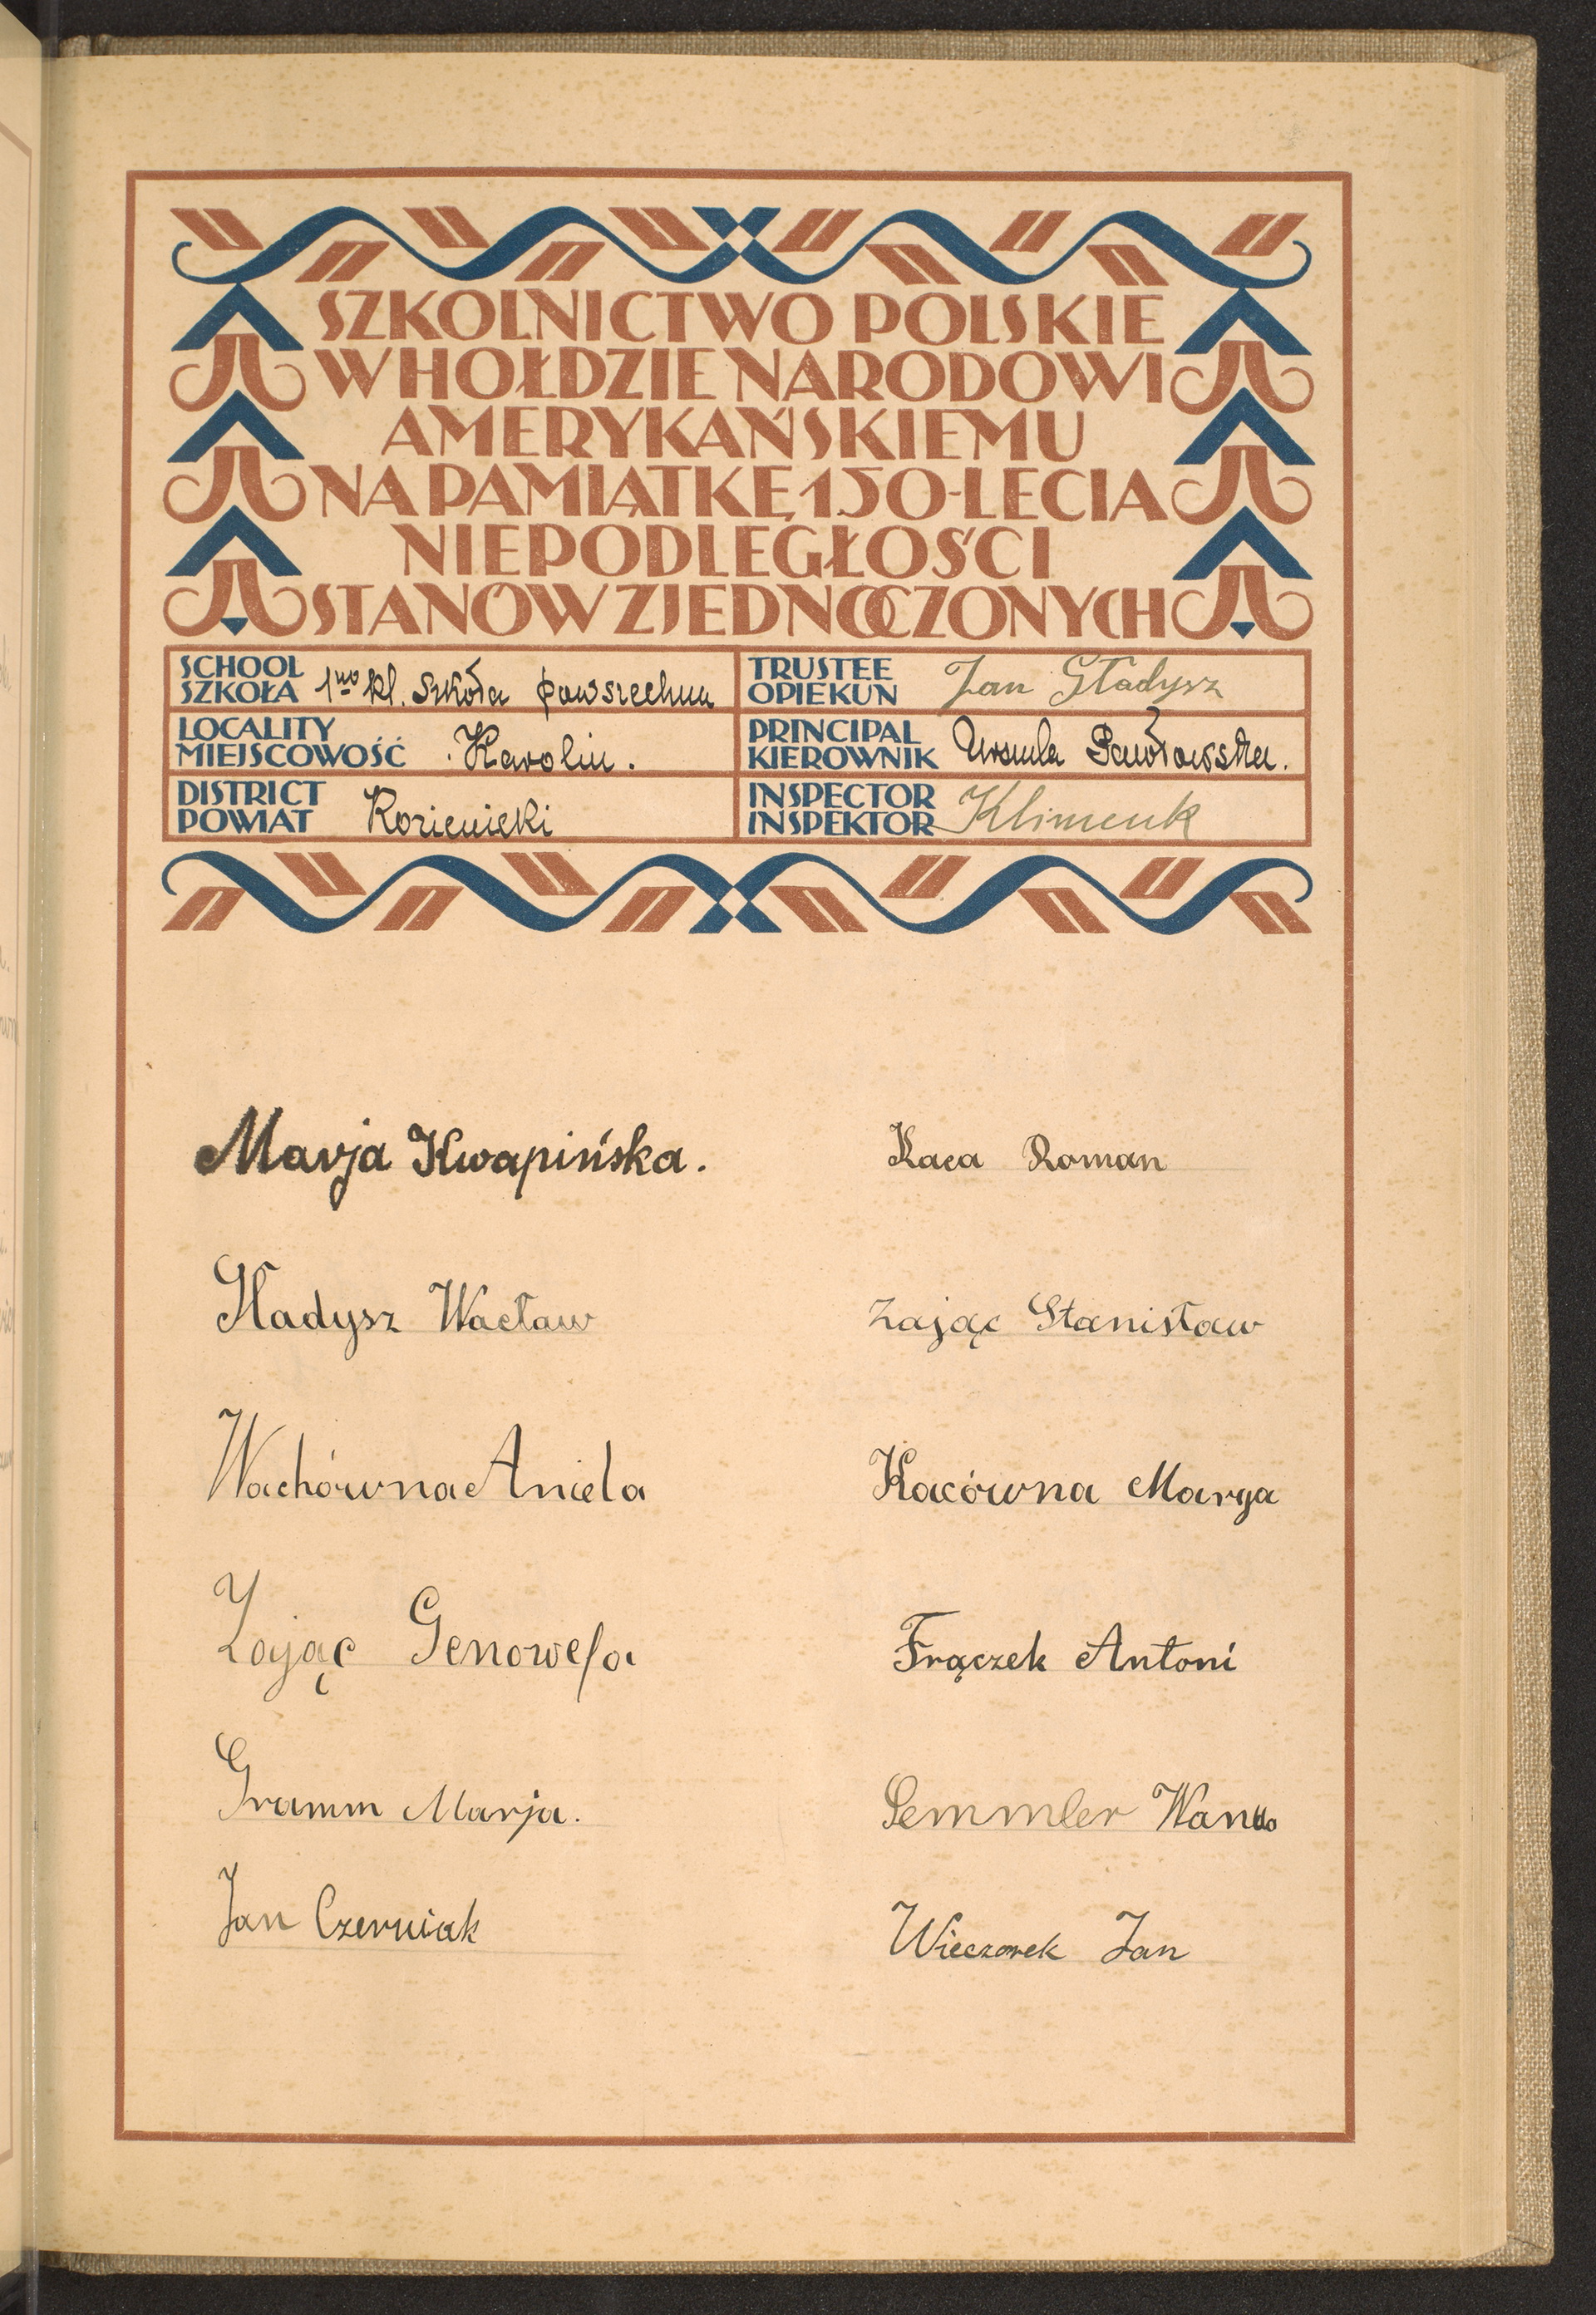 SZKOLNICTWO POLSKIE
W HOŁDZIE NARODOWI
AMERYKAŃSKIEMU
NA PAMIĄTKĘ 150-LECIA
NIEPODLEGŁOŚCI
STANÓW ZJEDNOCZONYCH
SCHOOL
SZKOŁA 1no kl. Szkoła powszechna
TRUSTEE
OPIEKUN Jan Gładysz
LOCALITY
MIEJSCOWOŚĆ Karolin.
PRINCIPAL
KIEROWNIK Ursula Pawłowska.
DISTRICT
POWIAT Kozienicki
INSPECTOR
INSPEKTOR Klimcuk
Marja Kwapińska.
Gładysz Wacław
Wachówna Aniela
Zając Genowefa
Gramm Marja.
Jan Czerniak
Kaca Roman
Zając Stanisław
Kacówna Marya
Frączek Antoni
Semmler Wanda
Wieczorek Jan